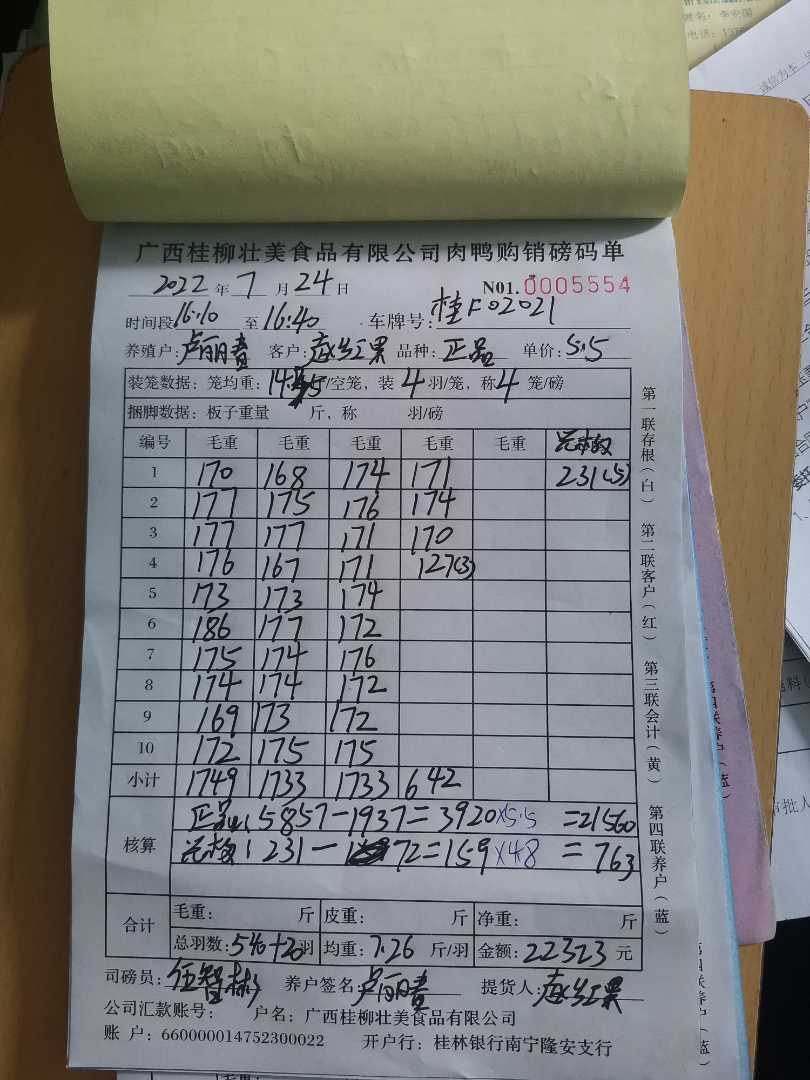 姓名：李安国
电话：137
诚信为本
广西桂柳壮美食品有限公司肉鸭购销磅码单
2022 年 7 月 24 日 N01.0005554
时间段 16:10 至 16:40 车牌号：桂F02021
养殖户：卢丽青 客户：赵红果 品种：正品 单价：5.5
装笼数据：笼均重：14.5 斤/空笼，装 4 羽/笼，称 4 笼/磅
捆脚数据：板子重量 斤，称 羽/磅
编号 毛重 毛重 毛重 毛重 毛重
1 170 168 174 171 231(5)
2 177 175 176 174
3 177 177 171 170
4 176 167 171 127(3)
5 173 173 174
6 186 177 172
7 175 174 176
8 174 174 172
9 169 173 172
10 172 175 175
小计 1749 1733 1733 642
核算 正品：5857-1937=3920×5.5 =21560
231-72=159×4.8 =763
合计 毛重： 斤 皮重： 斤 净重： 斤
总羽数：540+20羽 均重：7.26 斤/羽 金额：22323 元
司磅员：伍智彬 养户签名：卢丽青 提货人：赵红果
公司汇款账号： 户名：广西桂柳壮美食品有限公司
账 户：660000014752300022 开户行：桂林银行南宁隆安支行
第一联存根（白） 第二联客户（红） 第三联会计（黄） 第四联养户（蓝）
第四联养户（蓝）
审批人